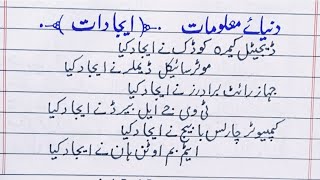 دنیائے معلومات .﴿ ایجادات ﴾.
ڈیجیٹل کیمرہ کوڈک نے ایجاد کیا
موٹر سائیکل ڈیملر نے ایجاد کیا
جہاز رائٹ برادرز نے ایجاد کیا
ٹی وی جے ایل بیرڈ نے ایجاد کیا
کمپیوٹر چارلس بابیج نے ایجاد کیا
ایٹم بم اوٹن ہان نے ایجاد کیا